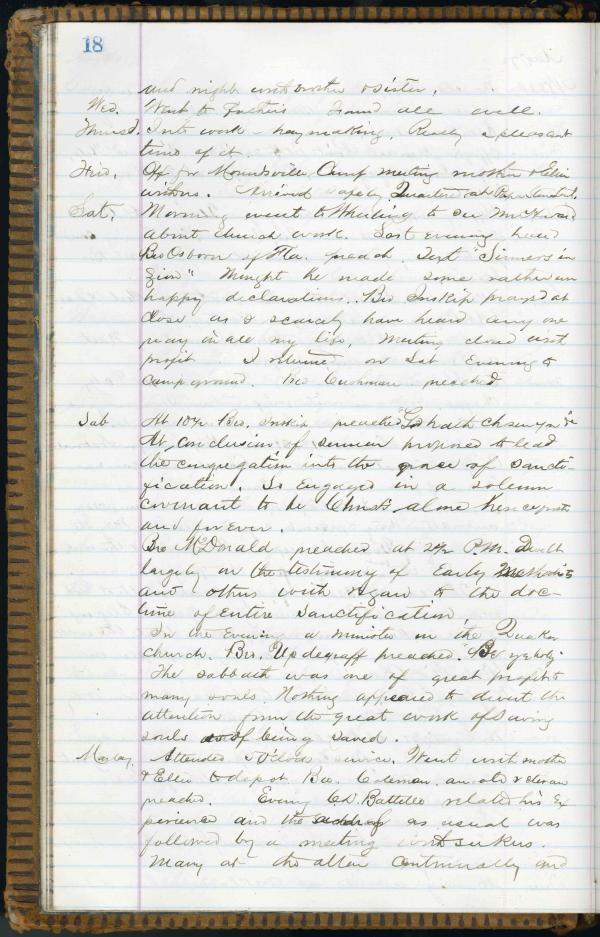 18
and night with brother & sister.
Wed. Went to Father's Found all well.
Thursd. Into work - haymaking. Really a pleasant
time of it.
Frid. Off for Moundsville Camp meeting mother & Ella
with me. Arrived safely. Quartered at
Sat. Morning went to Wheeling to see McK
about church work. Last evening heard
Bro Osborn of Fla. preach. Text "Sinners in
Zion" thought he made some rather un
happy declarations. Bro Inskip prayed at
close as I scarcely have heard any one
pray in all my life. Meeting closed with
profit. I returned on Sat Evening to
camp ground. Bro Cushman preached
Sab At 10 1/2 Bro. Inskip preached "God hath chosen you" &c
At conclusion of sermon proposed to lead
the congregation into the grace of sancti-
fication. So Engaged in a solemn
covenant to be Christ's alone henceforth
and forever.
Bro McDonald preached at 2 1/2 P.M. Dwelt
largely on the testimony of Early Methodists
and others with regard to the doc-
trine of Entire Sanctification.
In the Evening a minister in the Quaker
church. Bro. Updegraff preached. "Be ye holy"
The sabbath was one of great profit to
many souls. Nothing appeared to divert the
attention from the great work of saving
souls of being saved.
Monday. Attended 5 O'Clock service. Went with mother
& Ella to depot. Bro. Coleman, an old veteran
preached. Evening Col Battelle related his Ex
perience and the address as usual was
followed by a meeting with seekers.
Many at the altar continually and